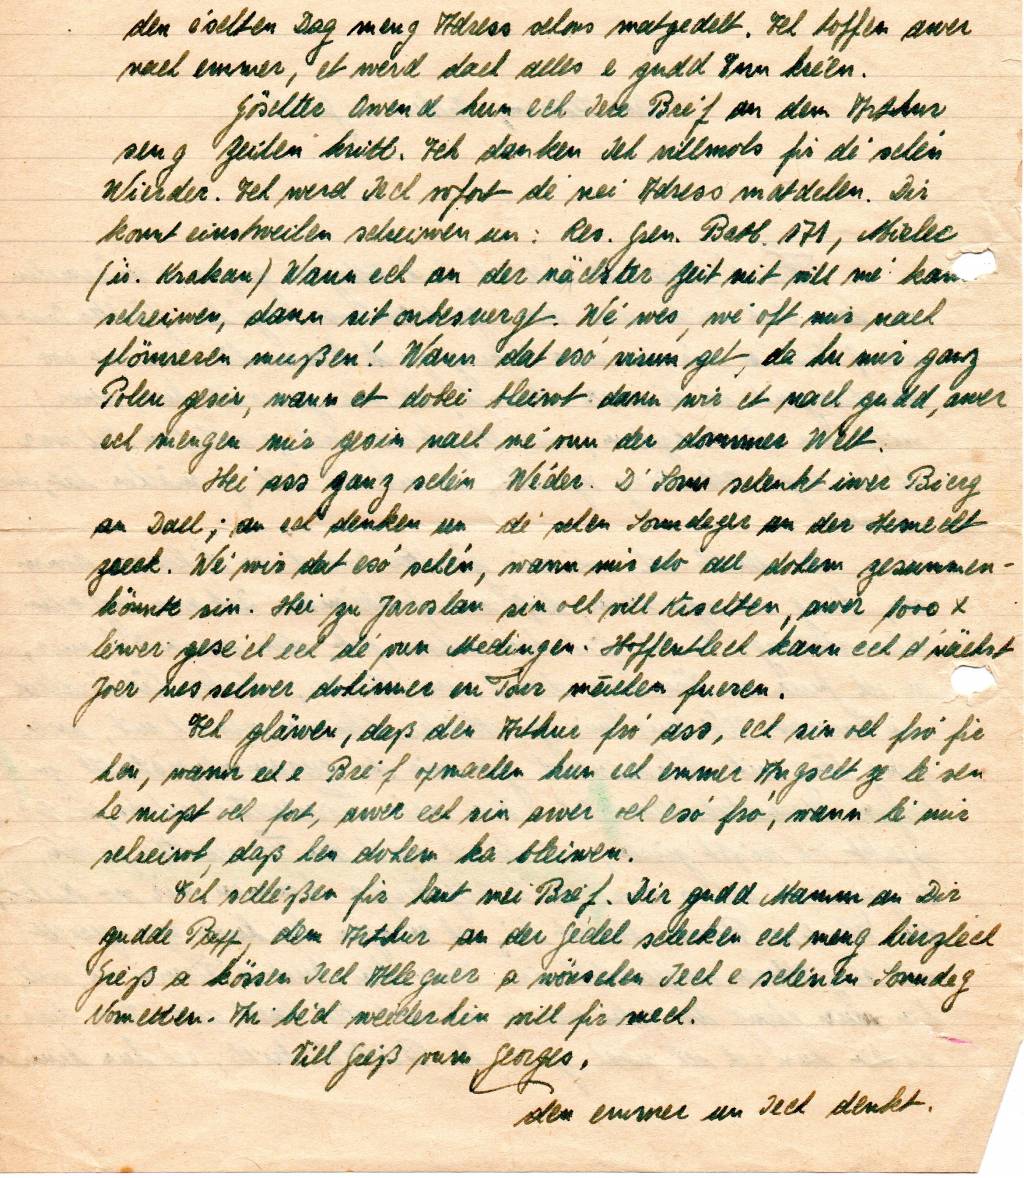 den éischten Dag meng Adress schons matgedelt. Ech hoffen awer
nach emmer, et werd dach alles e gudd Enn kréen.
Gëschter Owend hun ech Iere Bréf an dem Arthur
seng Zeilen kritt. Ech danken Iech villmols fir dé schén
Wierder. Ech werd Iech sofort dé nei Adress matdelen. Dir
konnt einstweilen schreiwen un: Res. Gren. Batl. 171, Mielec
(ü. Krakau) Wann ech an der nächster Zeit nit vill mé kann
schreiwen, dann sit onbesuergt. Wé wës, wé oft mir nach
plönneren mußen! Wann dat esó virun get, da hu mir ganz
Polen gesin, wann et dobei bleiwt dann wir et nach gudd, awer
ech mengen mir gesin nach mé vun der dommer Welt.
Hei ass ganz schéin Wéder. D'Sonn schenkt iwer Bierg
an Dall; an ech denken un dé schen Sonndeger an der Hemecht
zreck. Wé wir dat esó schén, wann mir elo all dohem zesummen-
könnte sin. Hei zu Jaroslau sin och vill Kischten, awer 1000 x
léwer geséch ech dé vun Medingen. Hoffentlech kann ech d'nächst
Joer nes selwer dohinner en Tour máchen fueren.
Ech gläwen, daß den Arthur fró ass, ech sin och fró fir
hen, wann ech e Bréf opmachen hun ech emmer Angscht ze lésen
he mißt och fort, awer ech sin awer och esó fró, wann hé mir
schreiwt, daß hen dohem ka bleiwen.
Ech schléißen fir haut mei Bréf. Dir gudd Mamm an Dir
gudde Papp, dem Arthur an der Gédel schecken ech meng hierzlech
Gréiß a kössen Iech Alleguer a wönschen Iech e schéinen Sonndeg
Nometten. An béd weiderhin vill fir mech.
Vill Gréiß vum Georges,
den emmer un Iech denkt.